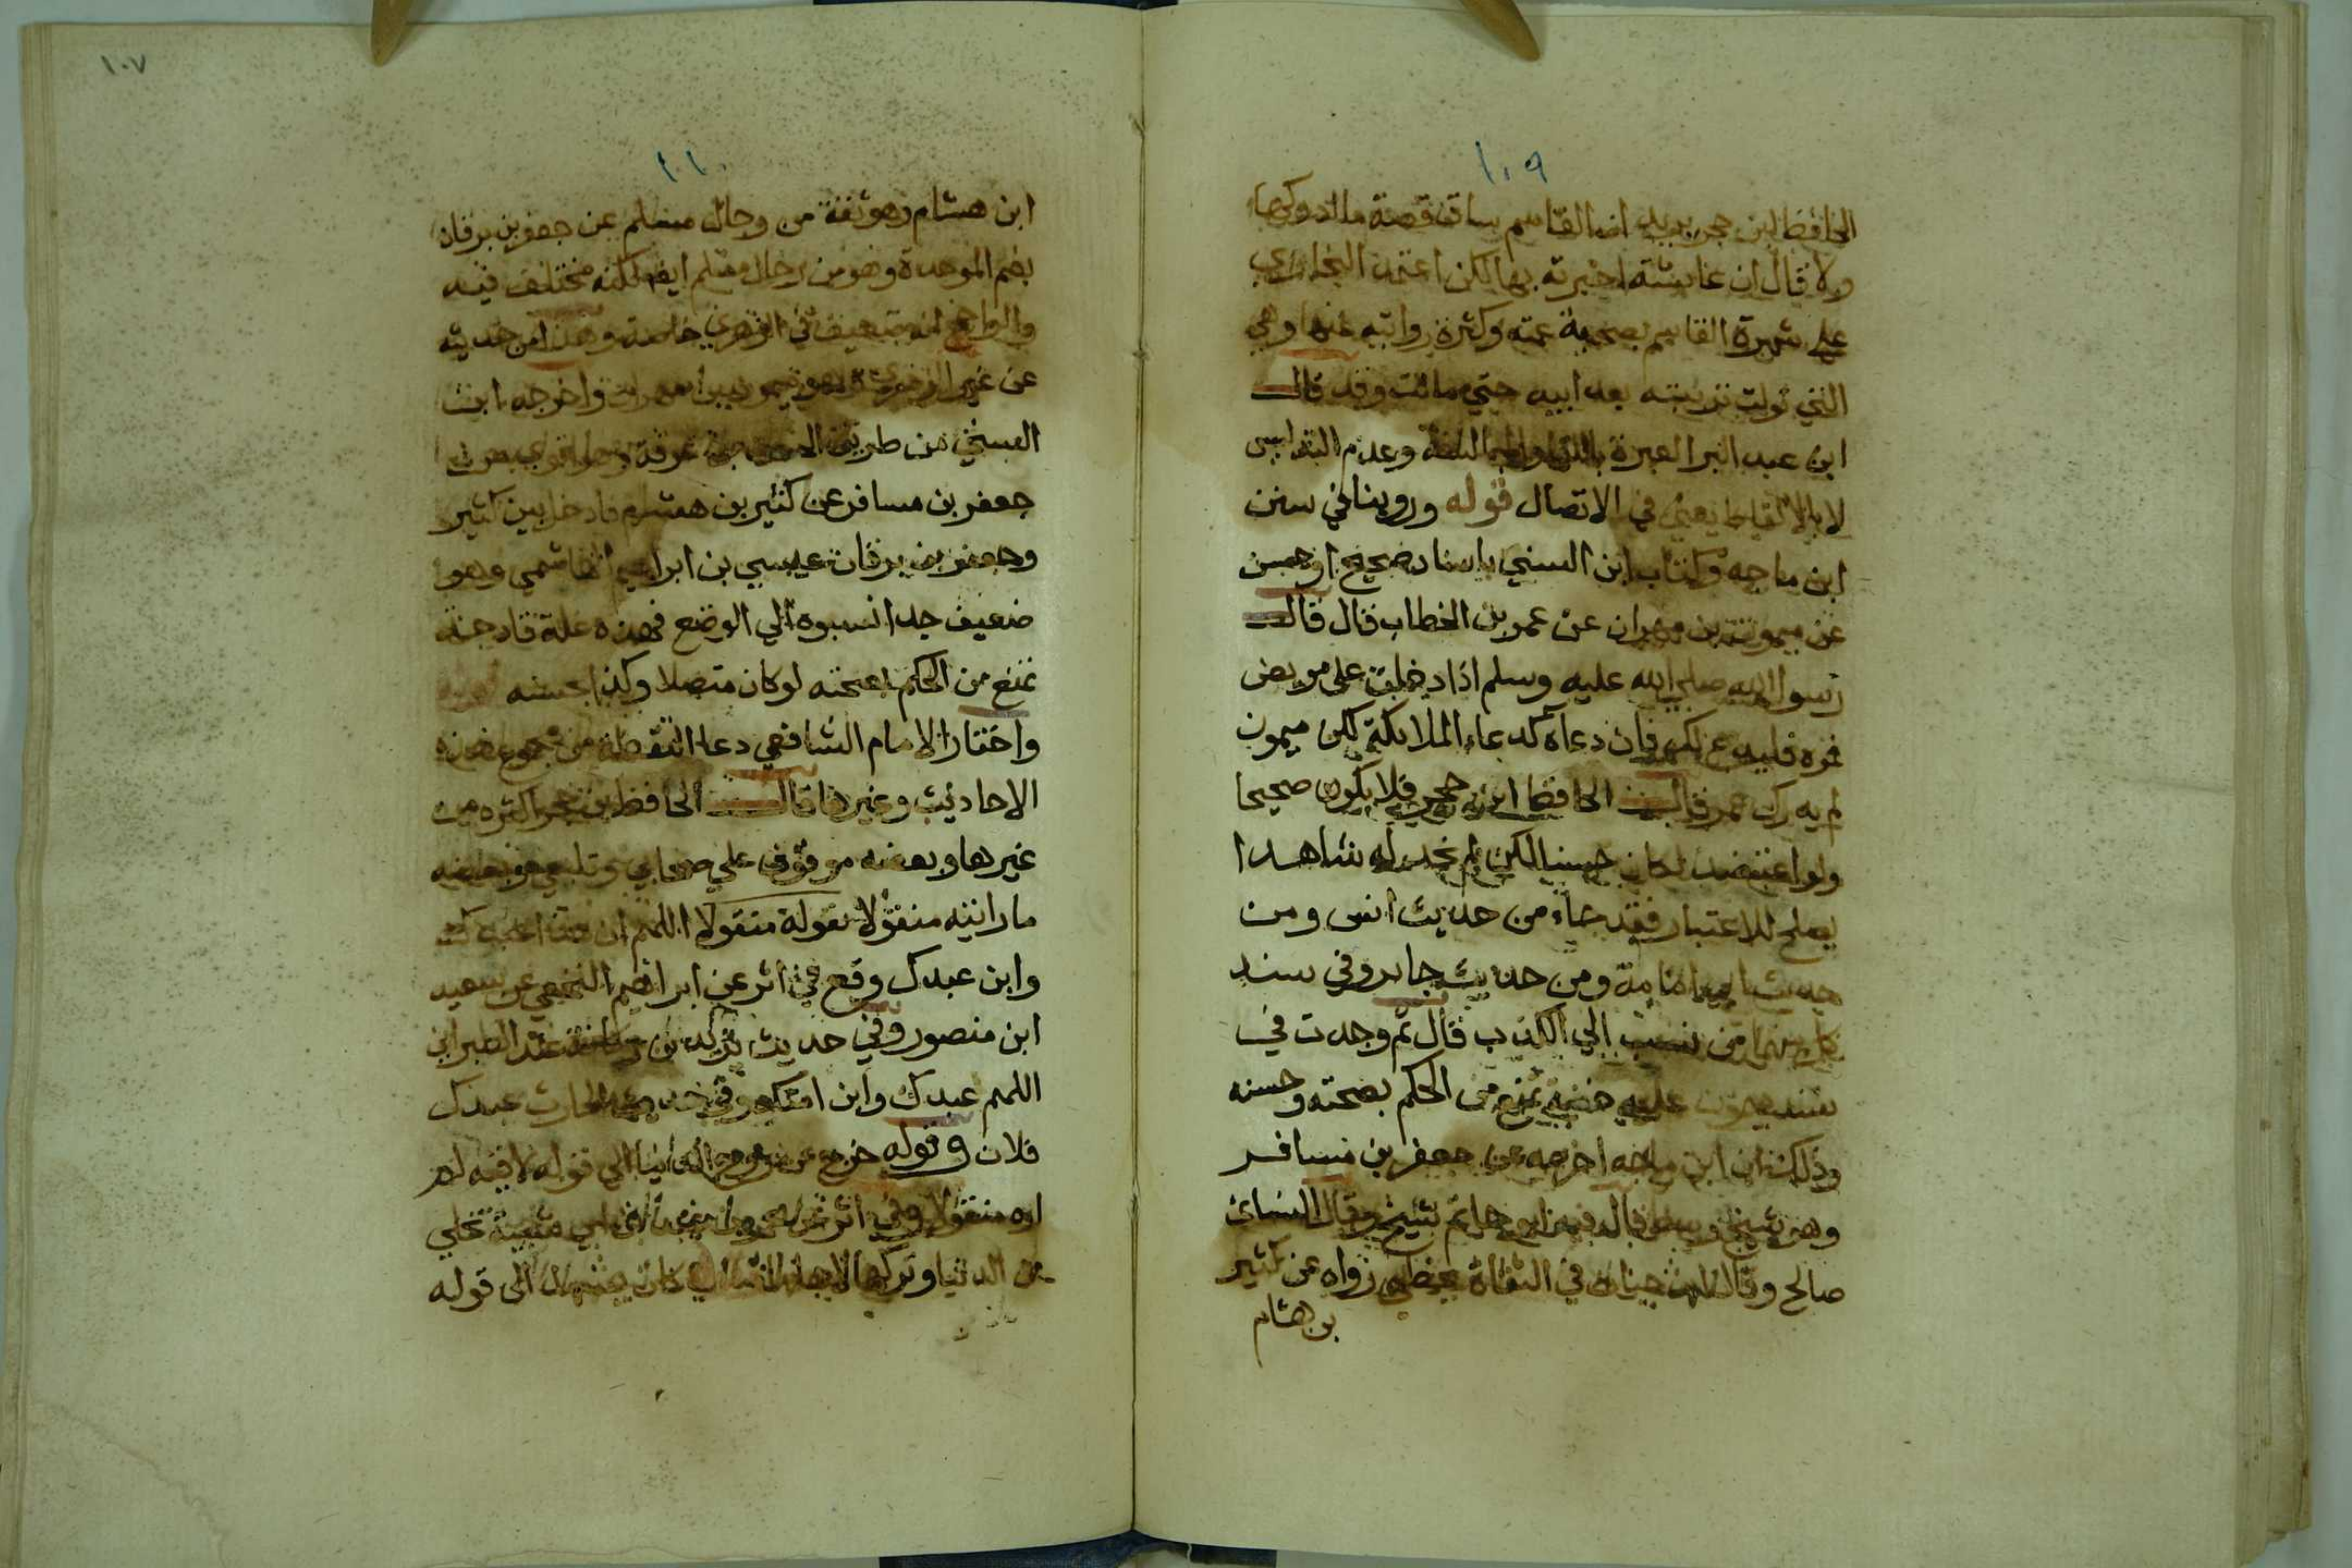 ١٠٩
الحافظ ابن حجر القاسم ساق قصة ما ادركها
ولا قال ان عايشة اخبرته بها لكن اعتمد البخاري
علي شهرة القاسم بصحبة عمته وكثرة روايته عنها وهي
التي تولت تربيته بعد ابيه حتي ماتت وقد قال
ابن عبد البر العبرة باللقا والمجالسة وعدم التدليس
لا بالالفاظ يعني في الاتصال قوله وروينا في سنن
ابن ماجه وكتاب ابن السني باسناد صحيح او حسن
عن ميمون بن مهران عن عمر بن الخطاب قال قال
رسول الله صلي الله عليه وسلم اذا دخلت علي مريض
فمره فليدع لك فان دعاه كدعاء الملايكة لكن ميمون
لم يدرك عمر قال الحافظ ابن حجر فلا يكون صحيحا
ولو اعتضد لكان حسنا لكن لم نجد له شاهدا
يصلح للاعتبار فقد جاء من حديث انس ومن
حديث ابي امامة ومن حديث جابر وفي سند
كل منهما من نسب الي الكذب قال ثم وجدت في
سند ميمون علة خفية تمنع من الحكم بصحته وحسنه
وذلك ان ابن ماجه اخرجه عن جعفر بن مسافر
وهو شيخ وسط قال فيه ابو حاتم شيخ وقال النسائ
صالح وقال ابن حبان في الثقاة يخطي رواه عن كثير
بن هشام
١٠٧
١١٠
ابن هشام وهو ثقة من رجال مسلم عن جعفر بن برقان
بضم الموحدة وهو من رجال مسلم ايضا لكنه مختلف فيه
والراجح انه ضعيف في الزهري خاصة وهذا من حديثه
عن غير الزهري وهو ميمون بن مهران واخرجه ابن
السني من طريق الحسن بن عرفة وهو اقوي من
جعفر بن مسافر عن كثير بن هشام فادخل بين كثير
وجعفر بن برقان عيسي بن ابراهيم الهاشمي وهو
ضعيف جدا نسبوه الي الوضع فهذه علة قادحة
تمنع من الحكم بصحته لو كان متصلا وكذا بحسنه
واختار الامام الشافعي دعا التقطه من مجموع هذه
الاحاديث وغيرها قال الحافظ ابن حجر اكثره من
غيرها وبعضه موقوف علي صحابي وتابعي وبعضه
ما رايته منقولا بقوله منقولا اللهم ان هذا عبدك
وابن عبدك وقع في اثر عن ابراهيم النخعي عن سعيد
ابن منصور وفي حديث يزيد بن ركانة عند الطبراني
اللهم عبدك وابن امتك وفي حديث الحارث عبدك
فلان وقوله خرج من روح الدنيا الي قوله لاقيه لم
اره منقولا وفي اثر عن عمر عند ابن ابي شيبة تخلي
من الدنيا وتركها لاهلها كان يشهد الي قوله